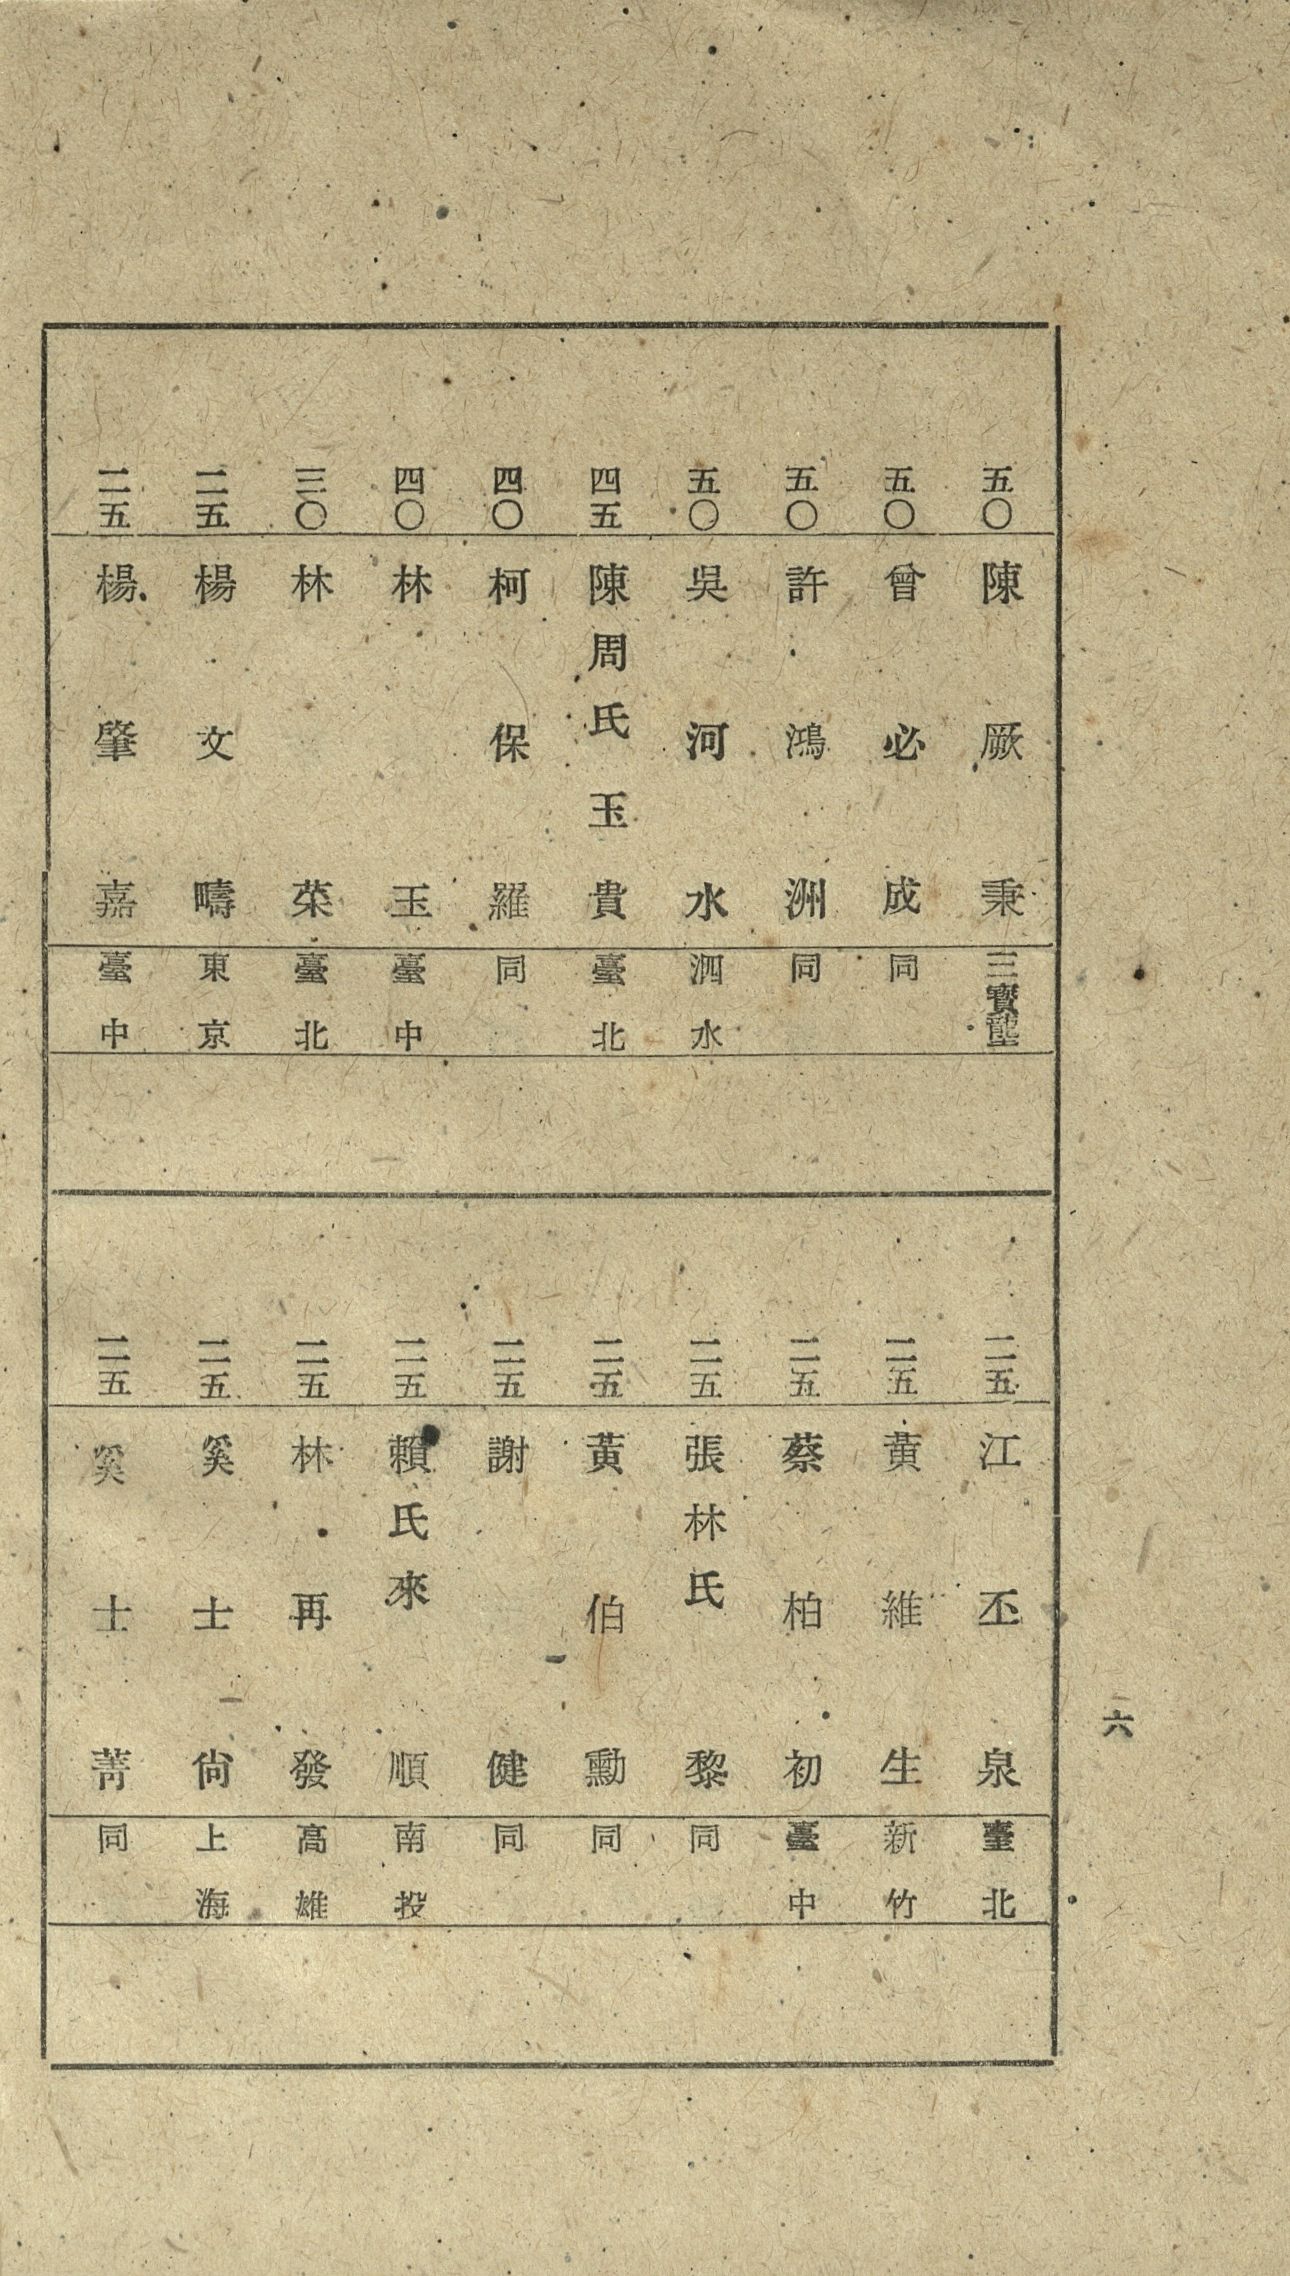 五〇 陳厥秉 三寶壟
五〇 曾必成 同
五〇 許鴻洲 同
五〇 吳河水 泗水
四五 陳周氏玉貴 臺北
四〇 柯保羅 同
四〇 林玉 臺中
三〇 林荣 臺北
二五 楊文疇 東京
二五 楊肇嘉 臺中
二五 江丕泉 臺北
二五 黄維生 新竹
二五 蔡柏初 臺中
二五 張林氏黎 同
二五 黃伯勳 同
二五 謝健 同
二五 賴氏來順 南投
二五 林再發 高雄
二五 奚士尙 上海
二五 奚士菁 同
六